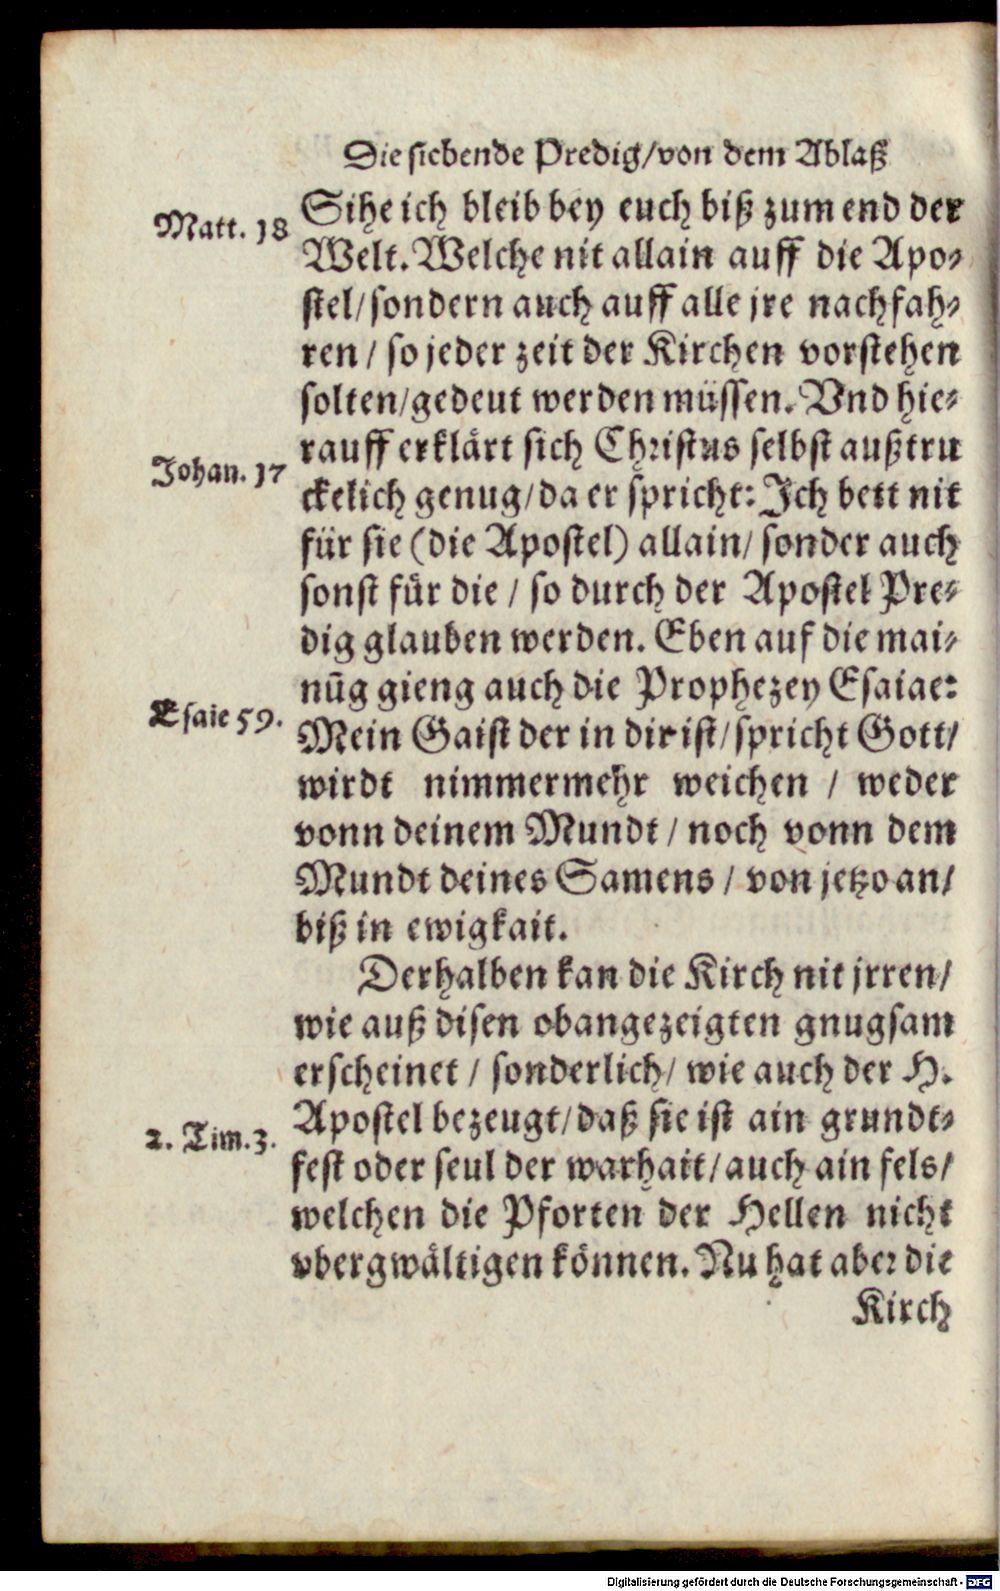 Die siebende Predig/von dem Ablaß
Matt. 18
Sihe ich bleib bey euch biß zum end der
Welt. Welche nit allain auff die Apo-
stel/sondern auch auff alle jre nachfah-
ren / so jeder zeit der Kirchen vorstehen
solten/gedeut werden müssen. Vnd hie-
rauff erklärt sich Christus selbst außtru
Johan. 17
ckelich genug/da er spricht: Ich bett nit
für sie (die Apostel) allain/ sonder auch
sonst für die / so durch der Apostel Pre-
dig glauben werden. Eben auf die mai-
nūg gieng auch die Prophezey Esaiae:
Esaie 59.
Mein Gaist der in dir ist/spricht Gott/
wirdt nimmermehr weichen / weder
vonn deinem Mundt / noch vonn dem
Mundt deines Samens / von jetzo an/
biß in ewigkait.
Derhalben kan die Kirch nit jrren/
wie auß disen obangezeigten gnugsam
erscheinet / sonderlich/ wie auch der H.
2. Tim. 3.
Apostel bezeugt/daß sie ist ain grundt-
fest oder seul der warhait/auch ain fels/
welchen die Pforten der Hellen nicht
vbergwältigen können. Nu hat aber die
Kirch
Digitalisierung gefördert durch die Deutsche Forschungsgemeinschaft - DFG